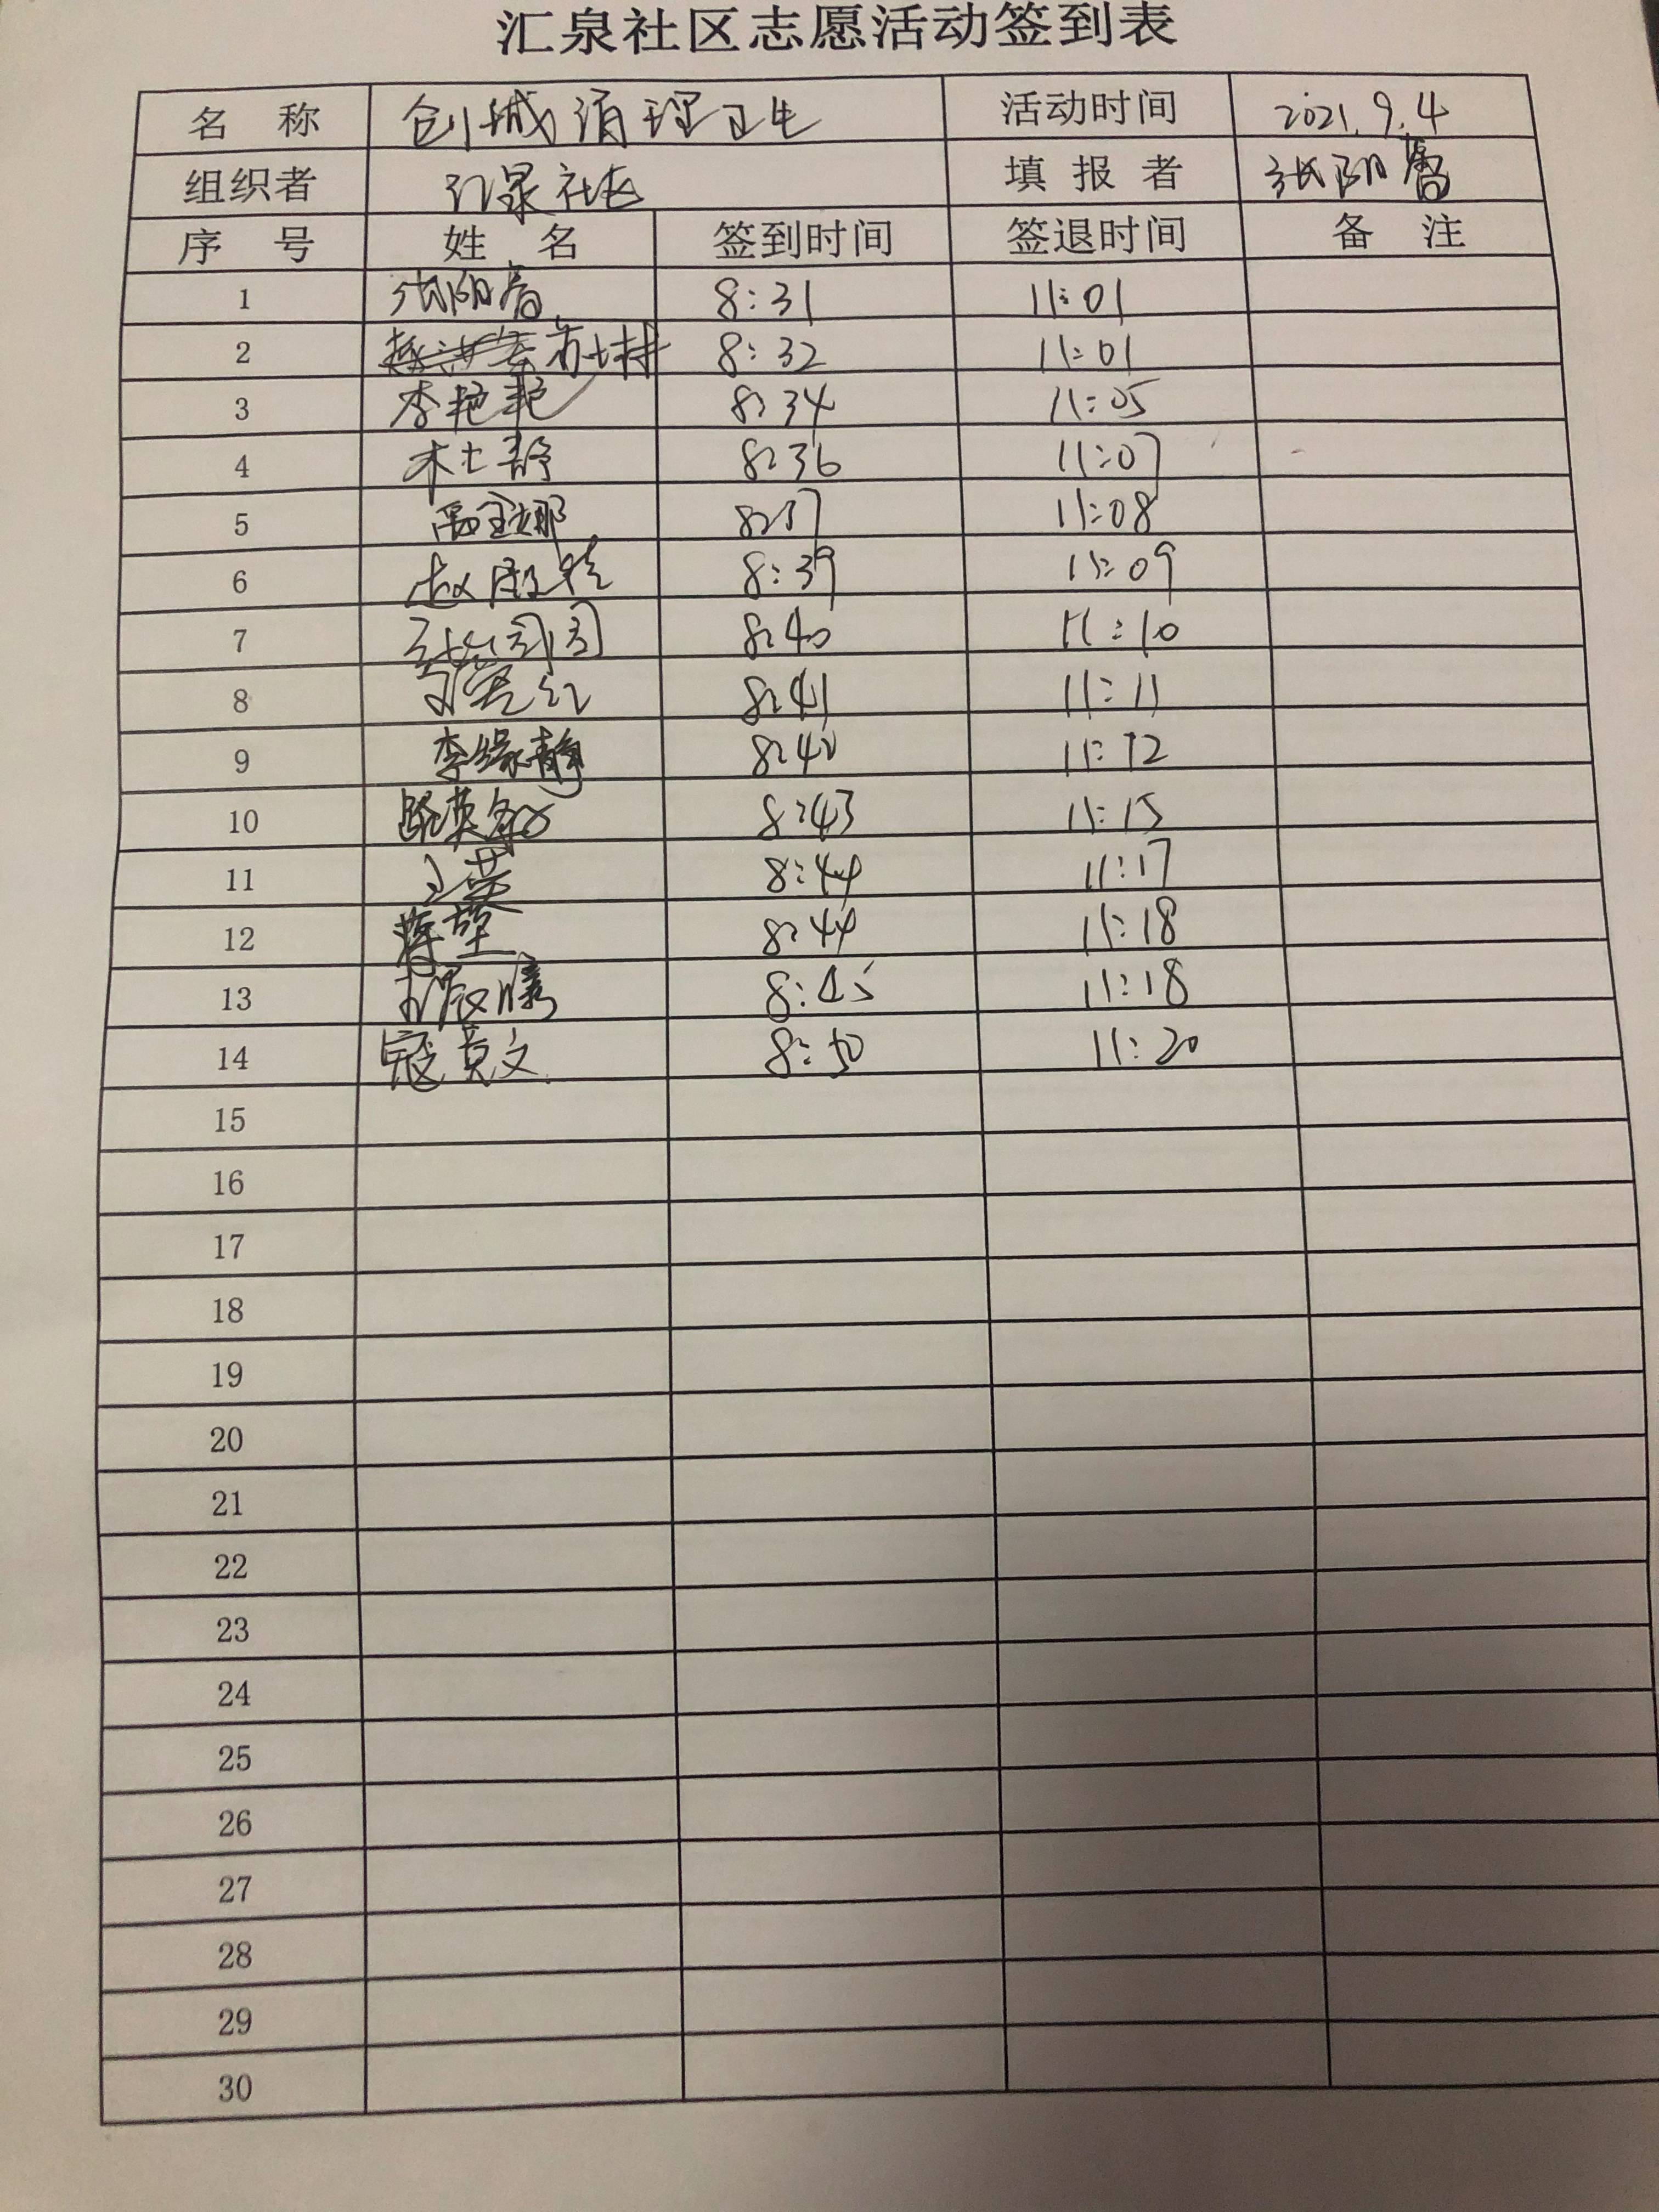 汇泉社区志愿活动签到表
名 称 创城清理卫生 活动时间 2021.9.4
组织者 汇泉社区 填报者 张阳
序 号 姓 名 签到时间 签退时间 备 注
1 张阳 8:31 11:01
2 8:32 11:01
3 李艳艳 8:34 11:05
4 杜静 8:36 11:07
5 娜 8:37 11:08
6 赵 8:39 11:09
7 8:40 11:10
8 红 8:41 11:11
9 李缘静 8:42 11:12
10 陈英 8:43 11:15
11 王英 8:44 11:17
12 8:44 11:18
13 8:45 11:18
14 寇 文 8:50 11:20
15
16
17
18
19
20
21
22
23
24
25
26
27
28
29
30